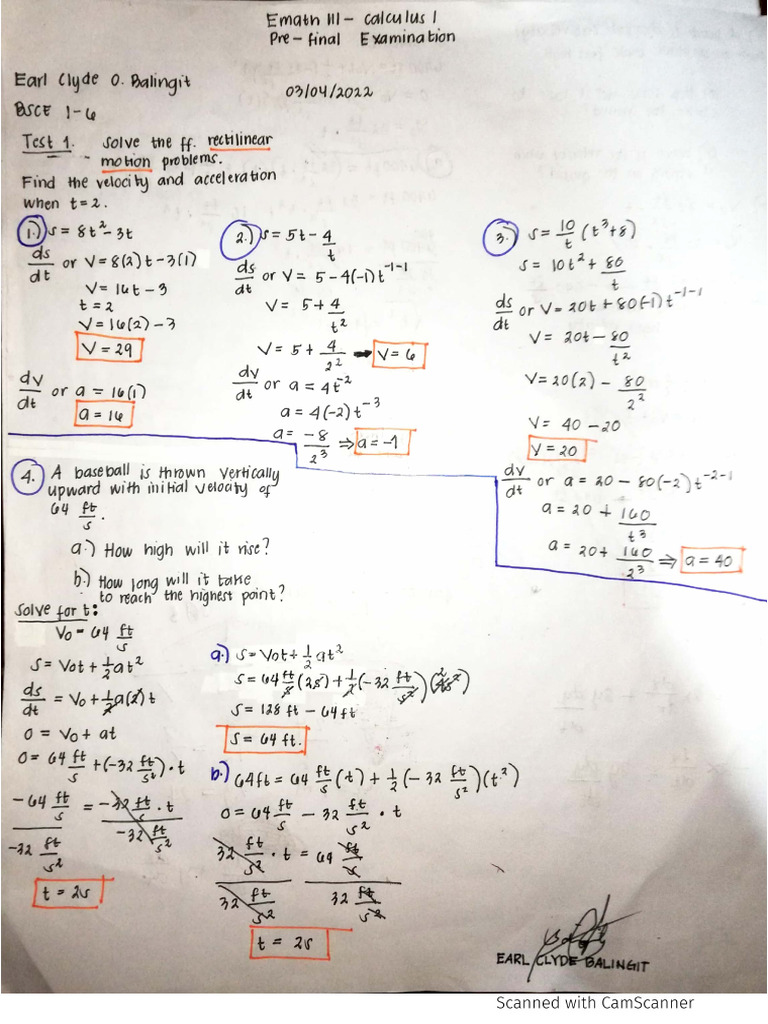 Emath III - Calculus 1
Pre-final Examination
Earl Clyde O. Balingit
03/04/2022
BSCE 1-6
Test 1. Solve the ff. rectilinear
motion problems.
Find the velocity and acceleration
when t=2.
1.) s = 8t²-3t
ds/dt or v = 8(2)t-3(1)
v = 16t-3
t = 2
v = 16(2)-3
v = 29
dv/dt or a = 16(1)
a = 16
2.) s = 5t - 4/t
ds/dt or v = 5-4(-1)t⁻¹⁻¹
v = 5 + 4/t²
v = 5 + 4/2² → v = 6
dv/dt or a = 4t⁻²
a = 4(-2)t⁻³
a = -8/2³ ⇒ a = -1
3.) s = 10/t (t³+8)
s = 10t² + 80/t
ds/dt or v = 20t + 80(-1)t⁻¹⁻¹
v = 20t - 80/t²
v = 20(2) - 80/2²
v = 40 - 20
v = 20
dv/dt or a = 20 - 80(-2)t⁻²⁻¹
a = 20 + 160/t³
a = 20 + 160/2³ ⇒ a = 40
4. A baseball is thrown vertically
upward with initial velocity of
64 ft/s.
a.) How high will it rise?
b.) How long will it take
to reach the highest point?
Solve for t:
Vo = 64 ft/s
s = Vot + 1/2 at²
ds/dt = Vo + 1/2 a(2)t
0 = Vo + at
0 = 64 ft/s + (-32 ft/s²) · t
-64 ft/s = -32 ft/s² · t
-32 ft/s² -32 ft/s²
t = 2s
a.) s = Vot + 1/2 at²
s = 64 ft/s (2s) + 1/2 (-32 ft/s²)(4s²)
s = 128 ft - 64 ft
s = 64 ft.
b.) 64ft = 64 ft/s (t) + 1/2 (-32 ft/s²)(t²)
0 = 64 ft/s - 32 ft/s² · t
32 ft/s² · t = 64 ft/s
32 ft/s² 32 ft/s²
t = 2s
EARL CLYDE BALINGIT
Scanned with CamScanner